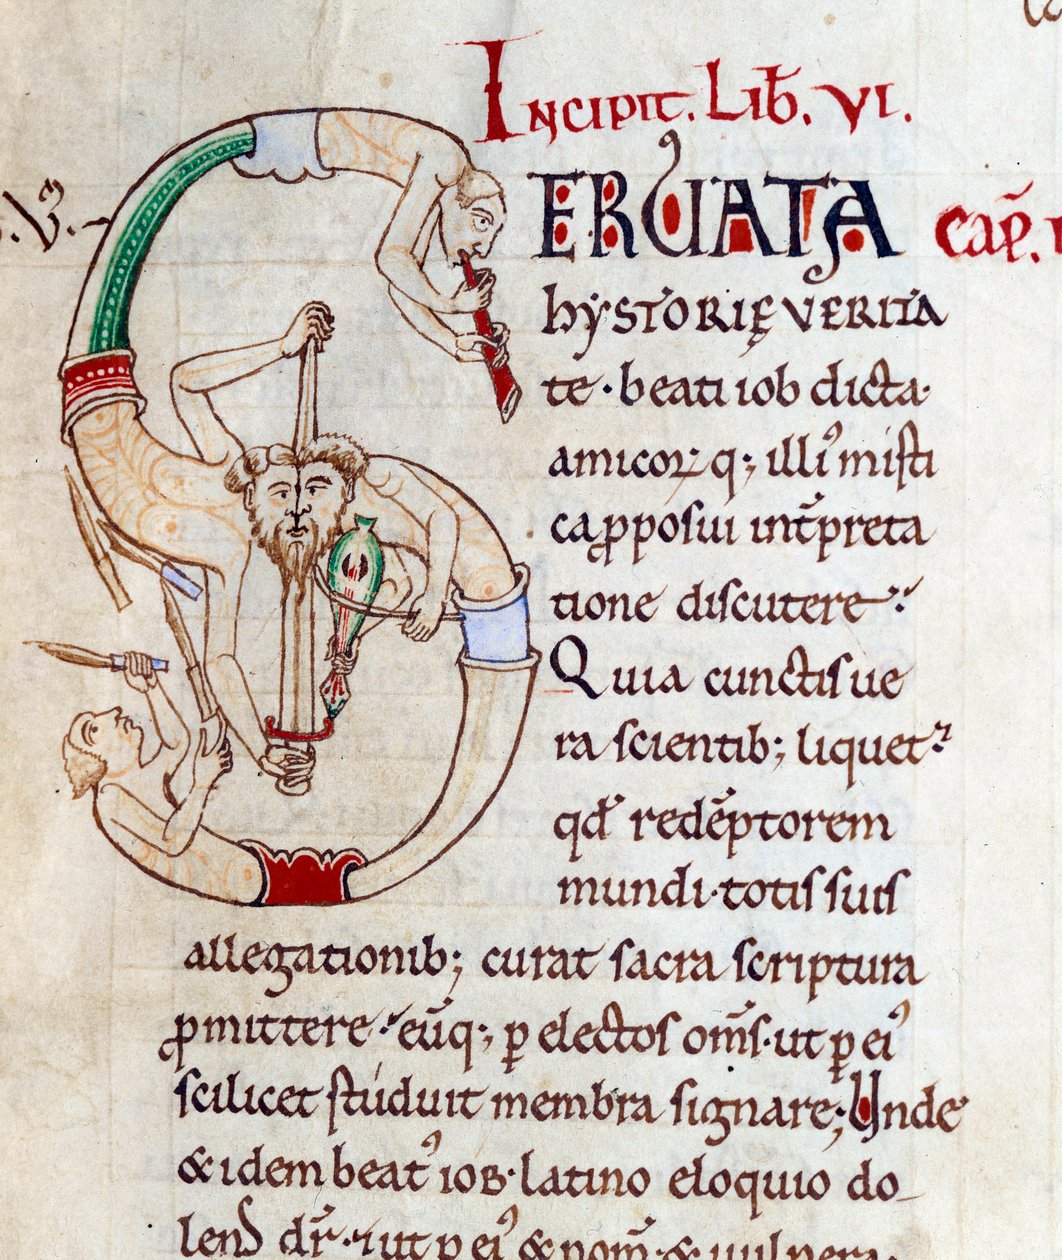 Incipit. Lib̄. VI.
SERUATA Cap̄. I
hẏstorię verita
te · beati iob dicta ·
amicoꝝ q; illiꝰ mısti
ca ꝓposui int̄ꝓreta
tione discutere ·
Quia cunctis ue
ra scientib; liquet
qd̄ redēptorem
mundi · totis suis
allegationib; curat sacra scriptura
ꝓmittere · eūq; ꝑ electos om̄s · ut ꝑ eiꝰ
scilicet studuit membra signare; Unde
& idem beatꝰ iob · latino eloquio do
lens dr̄ ·